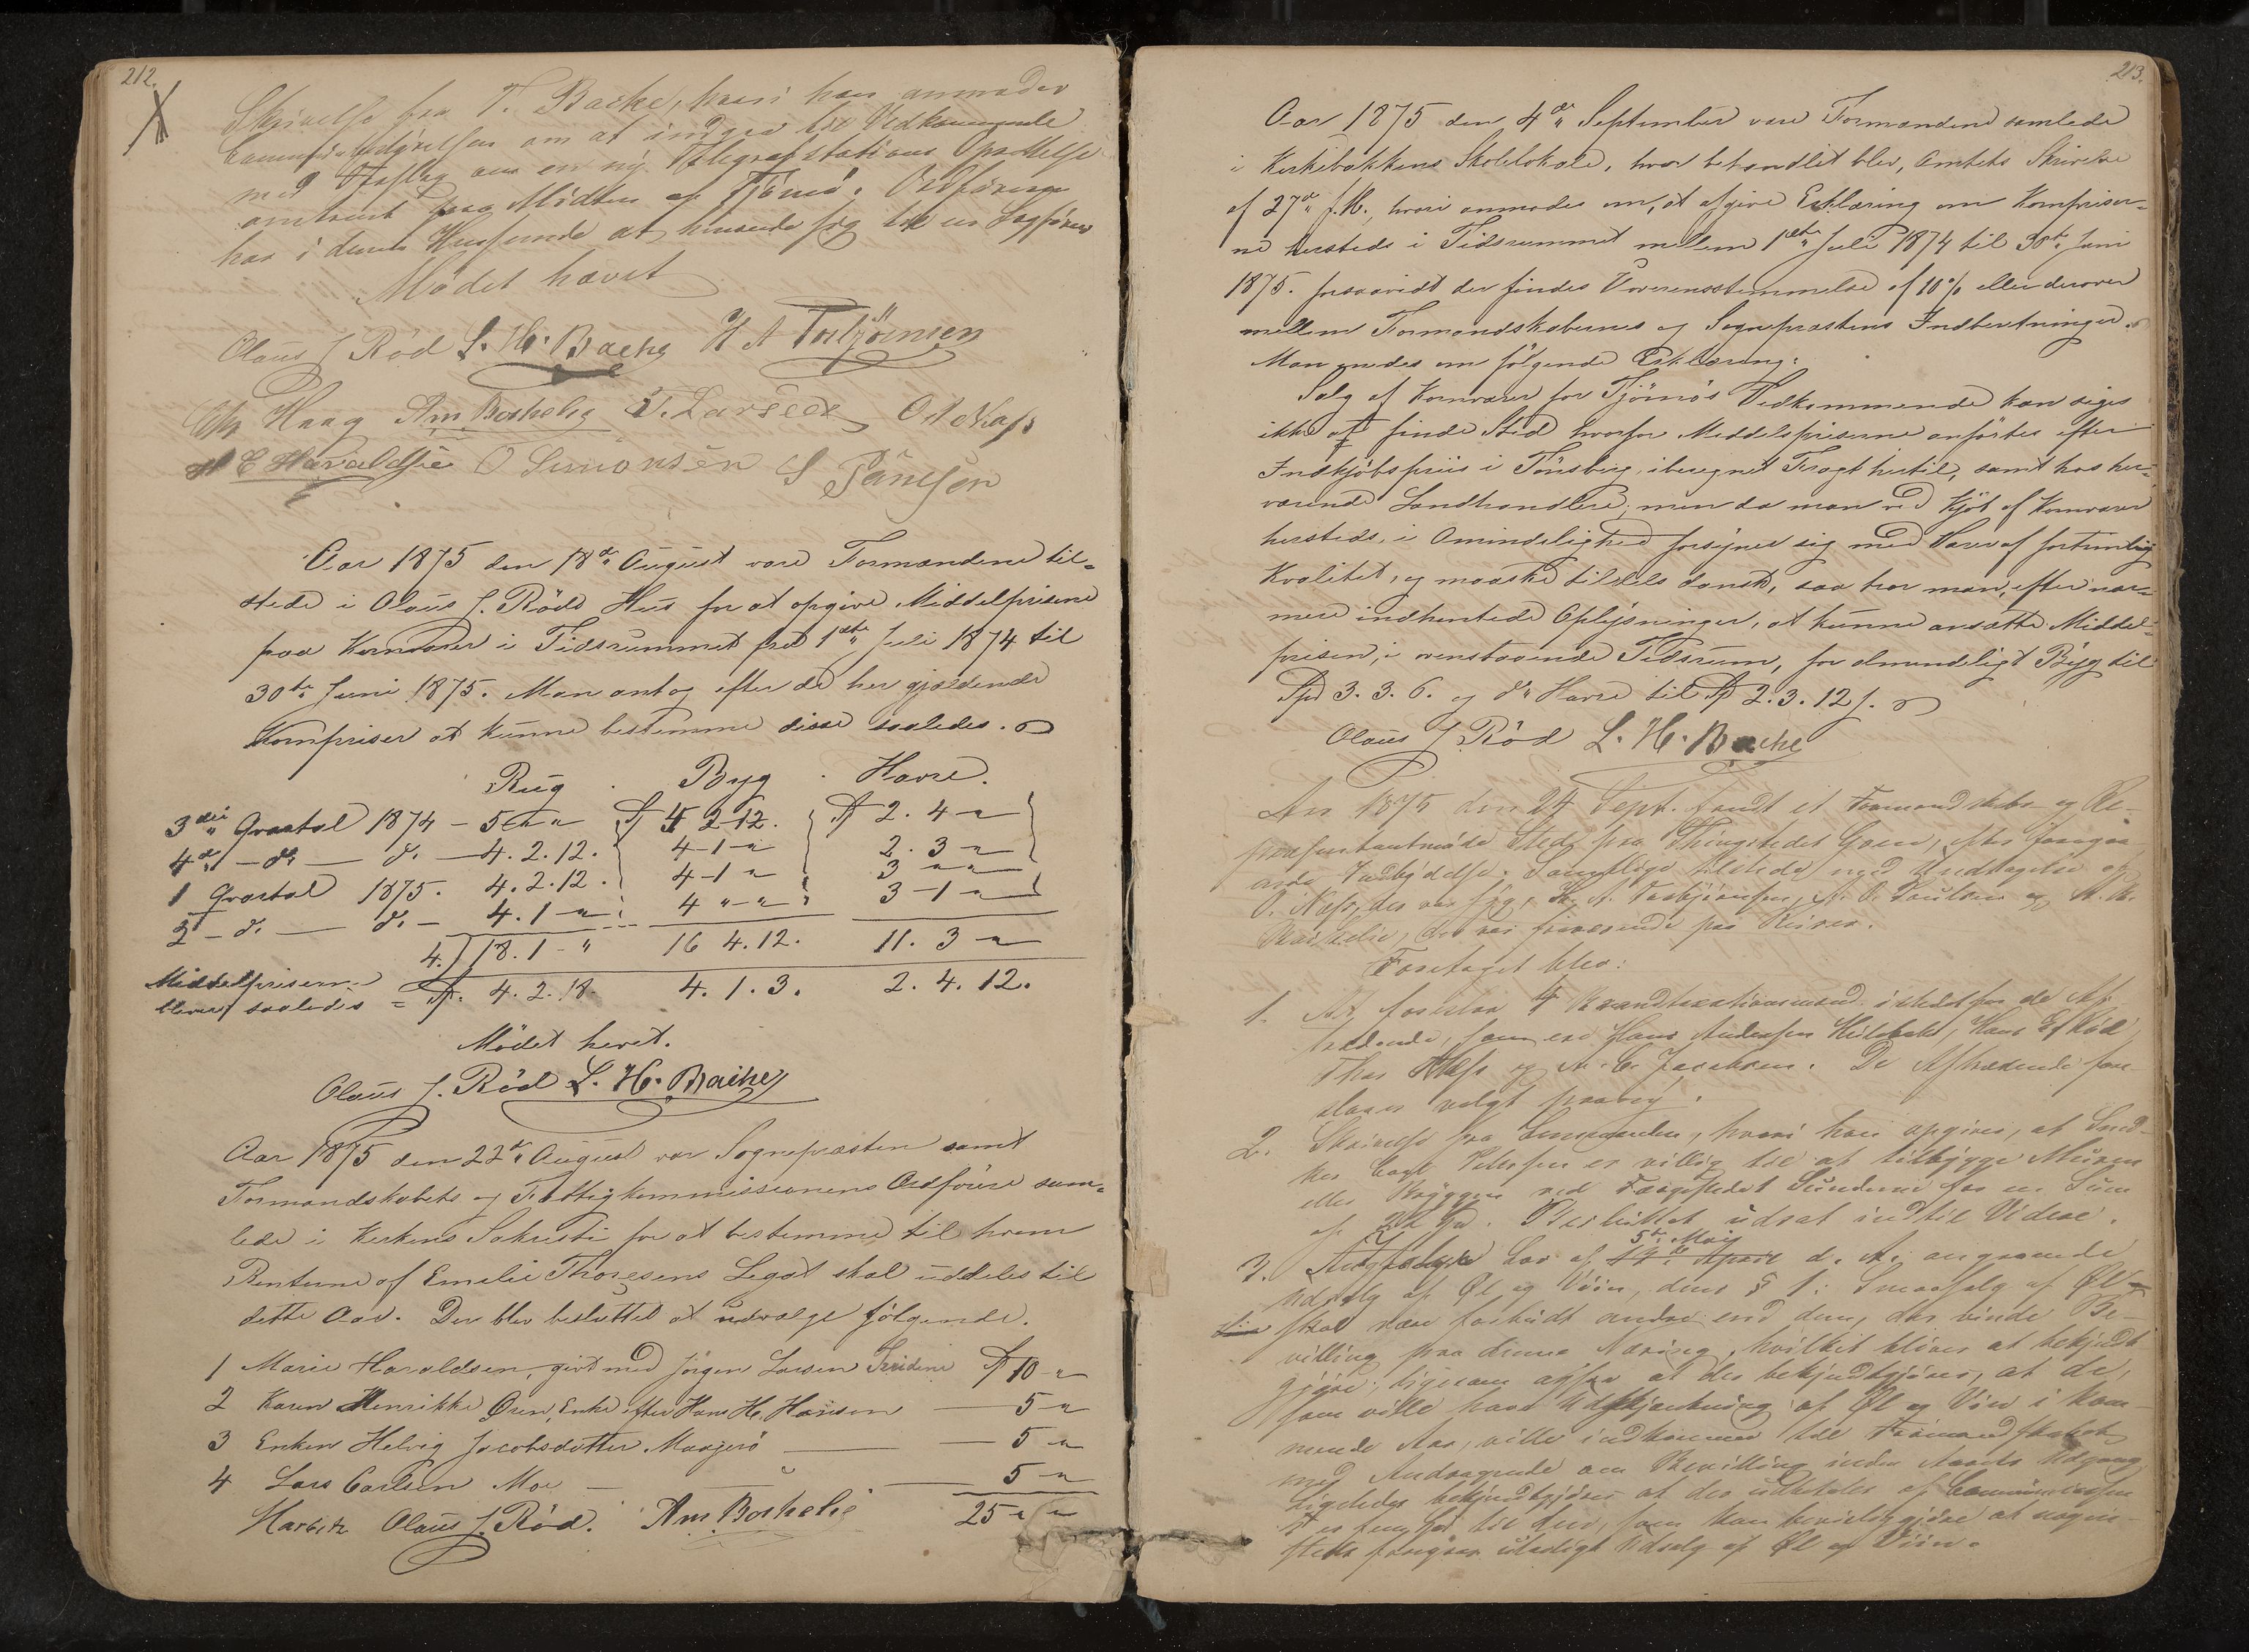 212.
Skrivelse fra T. Backe, hvori han anmoder
Communebestyrelsen om at indgaa til Vedkommende
med Forslag om en ny Telegrafstations Oprettelse
omtrent paa Midten af Tjömö. Ordføreren
har i denne Henseende at henvende sig til en Sagfører
Mödet hævet
Olaus J Röd L. H. Backe H A Torbjörnsen
Chr Haag Am Boskelie T. Larsen O A Næss
H E Haraldsen O Simonsen S Paulsen
Aar 1875 den 18de August vare Formændene til-
stede i Olaus J. Röds Hus for at opgive Middelprisene
paa Kornvarer i Tidsrummet fra 1ste Juli 1874 til
30te Juni 1875. Man antog efter de her gjældende
Kornpriser at kunne bestemme disse saaledes.
Rug Byg Havre.
3die Qvartal 1874 – 5 " " Spd 4 2 12. Spd 2. 4 "
4de – do – do – 4. 2. 12. 4 – 1 – " 2. 3 – "
1 Qvartal 1875. 4. 2. 12. 4 – 1 " 3 " "
2 – do – do – 4. 1 – " 4 " – " 3 – 1 – "
4.) 18. 1 – " 16 4. 12. 11. 3 – "
Middelpriserne
bliver saaledes = Spd. 4. 2. 18 4. 1. 3. 2. 4. 12.
Mödet hævet.
Olaus J. Röd L. H. Backe
Aar 1875 den 22de August var Sognepræsten samt
Formandskabets og Fattigkommissionens Ordförere sam-
lede i Kirkens Sakristi for at bestemme til hvem
Renterne af Emelie Thoresens Legat skal uddeles til
dette Aar. Der blev besluttet at udvælge fölgende.
1 Marie Haraldsen, givt med Jörgen Larsen Spd 10 – "
2 Karen Henrikke Øren, Enke efter Hans H. Hansen – 5 – "
3 Enken Helvig Jacobsdatter Maagerö – 5 – "
4 Lars Carlsen Moe – 5 – "
Harbitz Olaus J. Röd. Am. Boskelie 25 " "
213.
Aar 1875 den 4de September vare Formændene samlede
i Kirkebakkens Skolelokale, hvor behandlet blev, Amtets Skrivelse
af 27de f.M., hvori anmodes om, at afgive Erklæring om Kornpriser-
ne hersteds i Tidsrummet mellem 1ste Juli 1874 til 30te Juni
1875. forsaavidt der findes Uoverensstemmelse af 10% eller derover
mellem Formandskabernes og Sognepræstens Indberetninger.
Man enedes om fölgende Erklæring:
Salg af Kornvarer for Tjömös Vedkommende kan siges
ikke at finde Sted hvorfor Middelspriserne anförtes efter
Indkjöbspriis i Tönsberg, iberegnet Fragt hertil, samt hos her-
værende Landhandlere; men da man ved Kjöb af Kornvarer
hersteds, i Almindelighed forsyner sig med Varer af fortrinlig
Kvalitet, og maaske tildels dansk, saa tror man, efter nær-
mere indhentede Oplysninger, at kunne ansætte Middel-
prisen, i ovenstaaende Tidsrum, for almindeligt Byg til
Spd 3. 3. 6. og do Havre til Spd 2. 3. 12 s.
Olaus J. Röd L. H. Backe
Aar 1875 den 24 Sept. fandt et Formandskabs- og Re-
præsentantmöde Sted paa Thingstedet Gaen, efter foregaa-
ende Indbydelse. Samtlige tilstede med Undtagelse af
O. Næss, der var syg, H. A. Torbjörnsen, A. O. Paulsen og A. M.
Boskelie, der var fraværende paa Reiser.
Foretaget blev:
1. At foreslaa 4 Brandtaxationsmænd istedetfor de Af-
trædende, som ere Hans Andersen Kilebak, Hans E. Röd,
Thor Næss og A. C. Jacobsen. De Aftrædende fore-
slaaes valgt paany.
2. Skrivelse fra Lensmanden, hvori han opgiver, at Sned-
ker Carl Pettersen er villig til at tilbygge Muren
eller Bryggen ved Færgestedet Sundene for en Sum
af 22 Spd. Besluttet udsat indtil Videre.
5te Maj
3. Angaaende Lov af 14de April d. A. angaaende
Udsalg af Øl og Viin, dens § 1: Smaasalg af Øl
skal være forbudt andre end dem, der vinde Be-
villing paa denne Næring, hvilket bliver at bekjendt-
gjöre; ligesom ogsaa at der bekjendtgjöres, at de,
som ville have Udskjænkning af Øl og Vin i kom-
mende Aar, ville indkomme til Formandskabet
med Andragende om Bevilling inden Aarets Udgang.
Ligeledes bekjendtgjöres at der udbetales af Communekassen
til den, som kan bevisliggjöre at nogen-
steds foregaar ulovligt Udsalg af Øl og Viin.